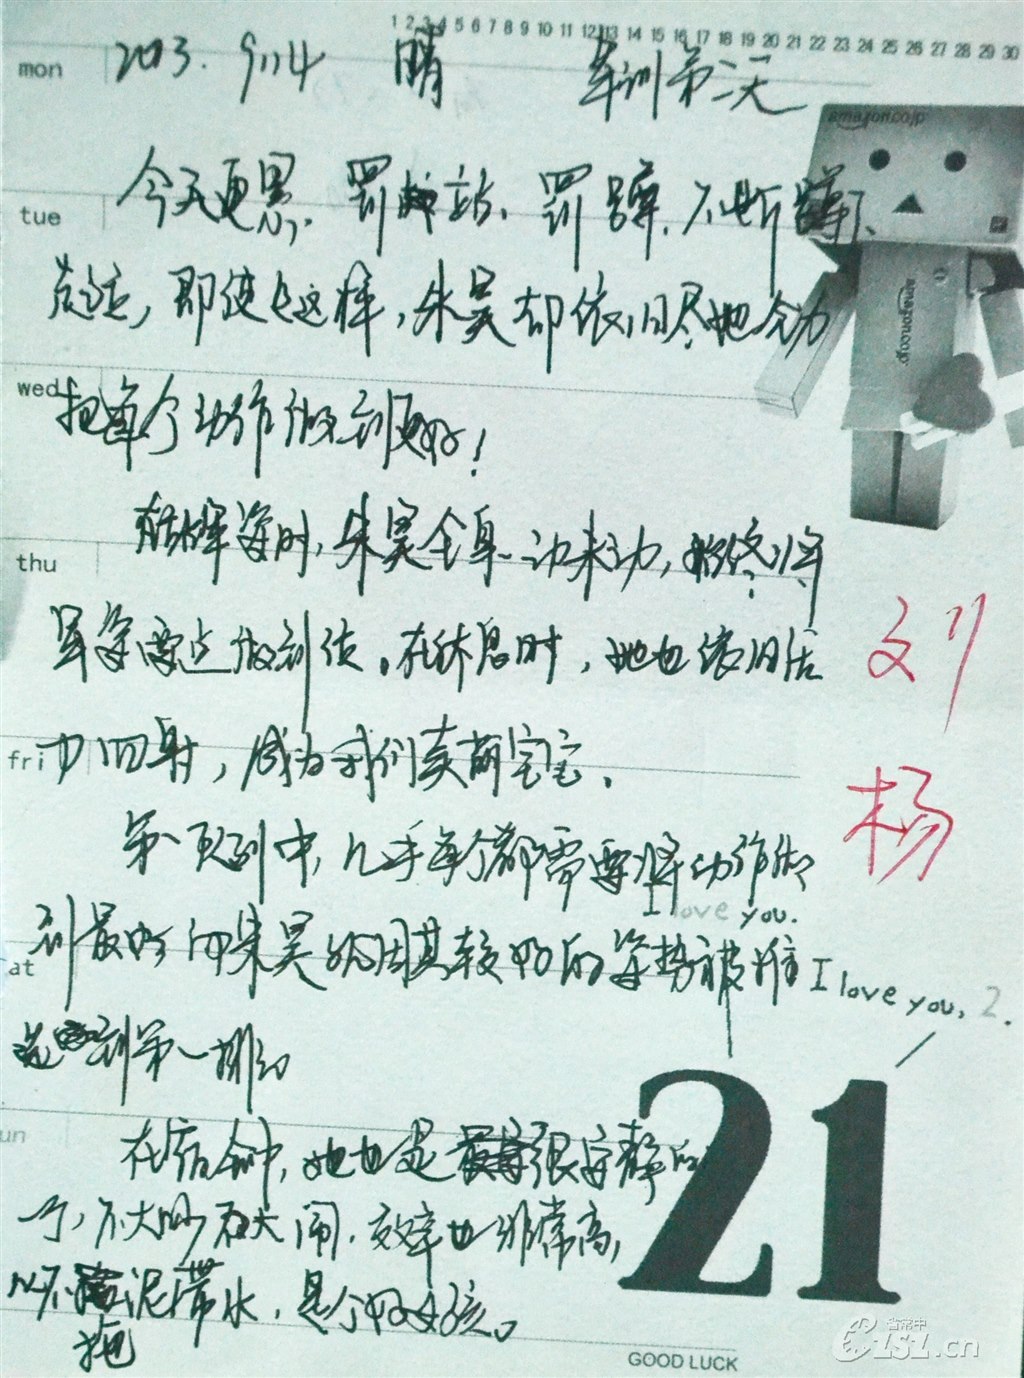 1 2 3 4 5 6 7 8 9 10 11 12 13 14 15 16 17 18 19 20 21 22 23 24 25 26 27 28 29 30
mon
2013. 9.14 晴 军训第二天
amazon.co.jp
今天更累. 罚站、罚蹲, 不断蹲下、
tue
起立, 即使这样, 朱昊却依旧尽她全力
amazon.co.jp
wed
把每个动作做到更好!
在站军姿时, 朱昊全身一动未动, 始终将
thu
军姿要点做到位。在休息时, 她也依旧活
刘
fri
力四射, 成为我们卖萌宝宝.
杨
第一页到中, 几乎每个都需要将动作做
I love you.
到最好 而朱昊因其较好的姿势被推
sat
I love you, 2.
选到第一排
21
sun
在宿舍中, 她也是很安静的一
个, 不大吵不大闹, 效率也非常高,
从不拖泥带水, 是个好女孩。
拖
GOOD LUCK
省常中
1S1.cn